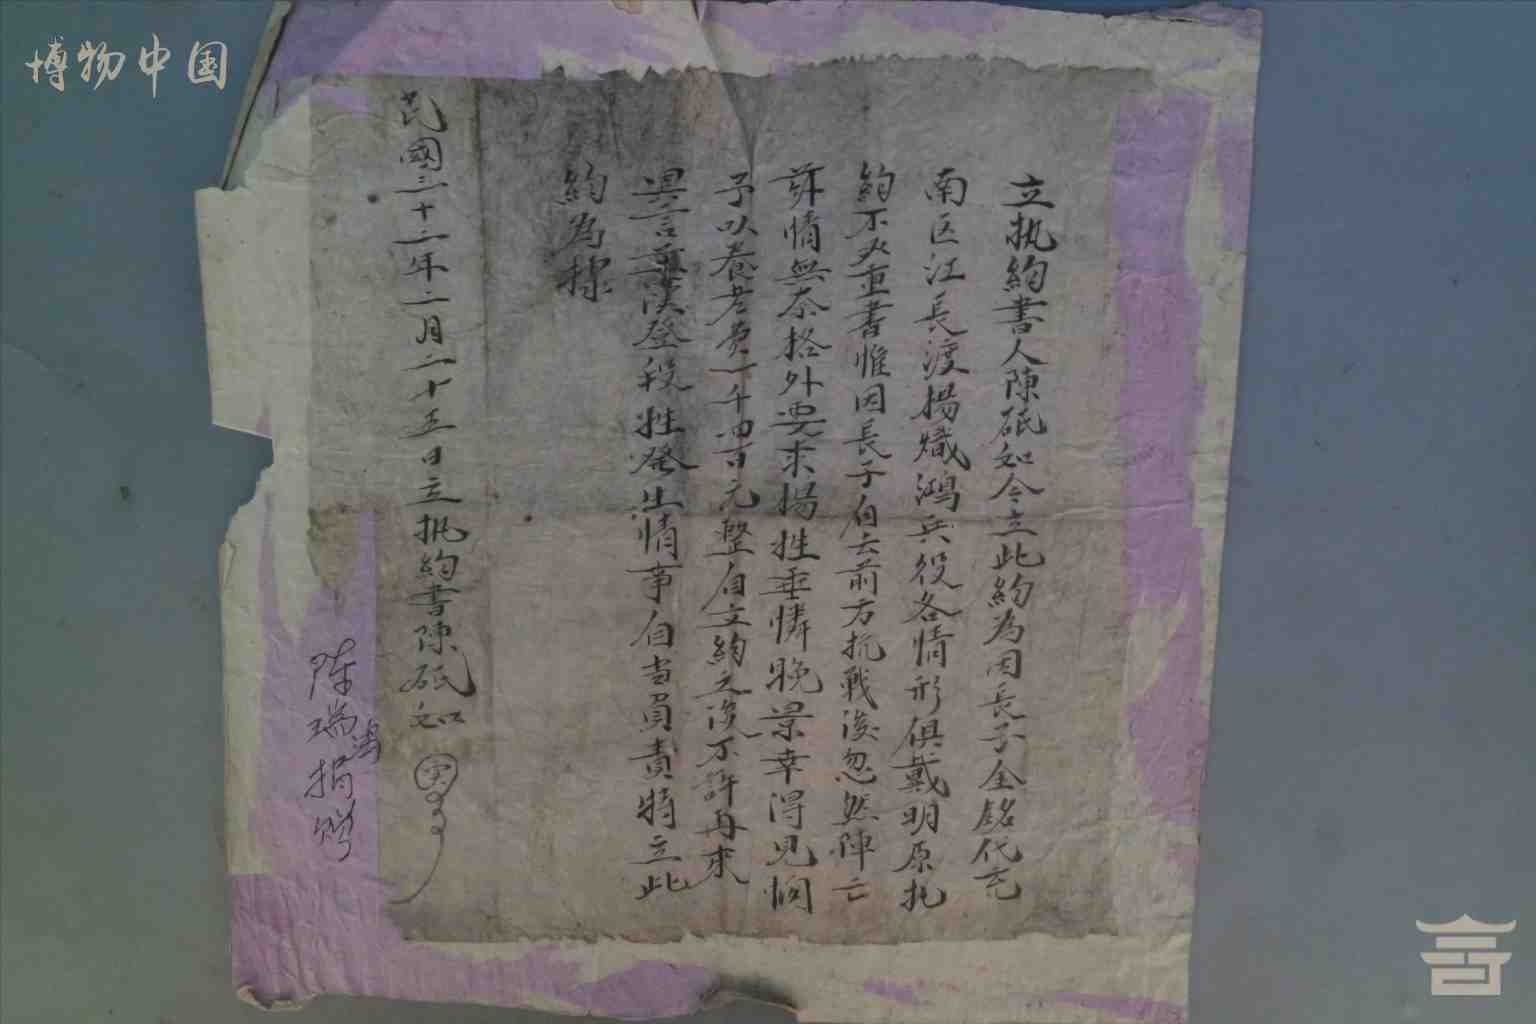 博物中国
立执約書人陳砥如今立此約為因長子金銘代充
南区江長渡楊熾鴻兵役各情形俱戴明原扎
約不必重書惟因長子自去前方抗戰後忽然陣亡
情無奈格外要求楊姓垂憐晚景幸得見憫
予以養老費一千四百元整自立約之後不許再來
異言 發生情事自当負責特立此
約為據
民國三十二年二月二十五日立执約書陳砥如
陈瑞鴻捐赠